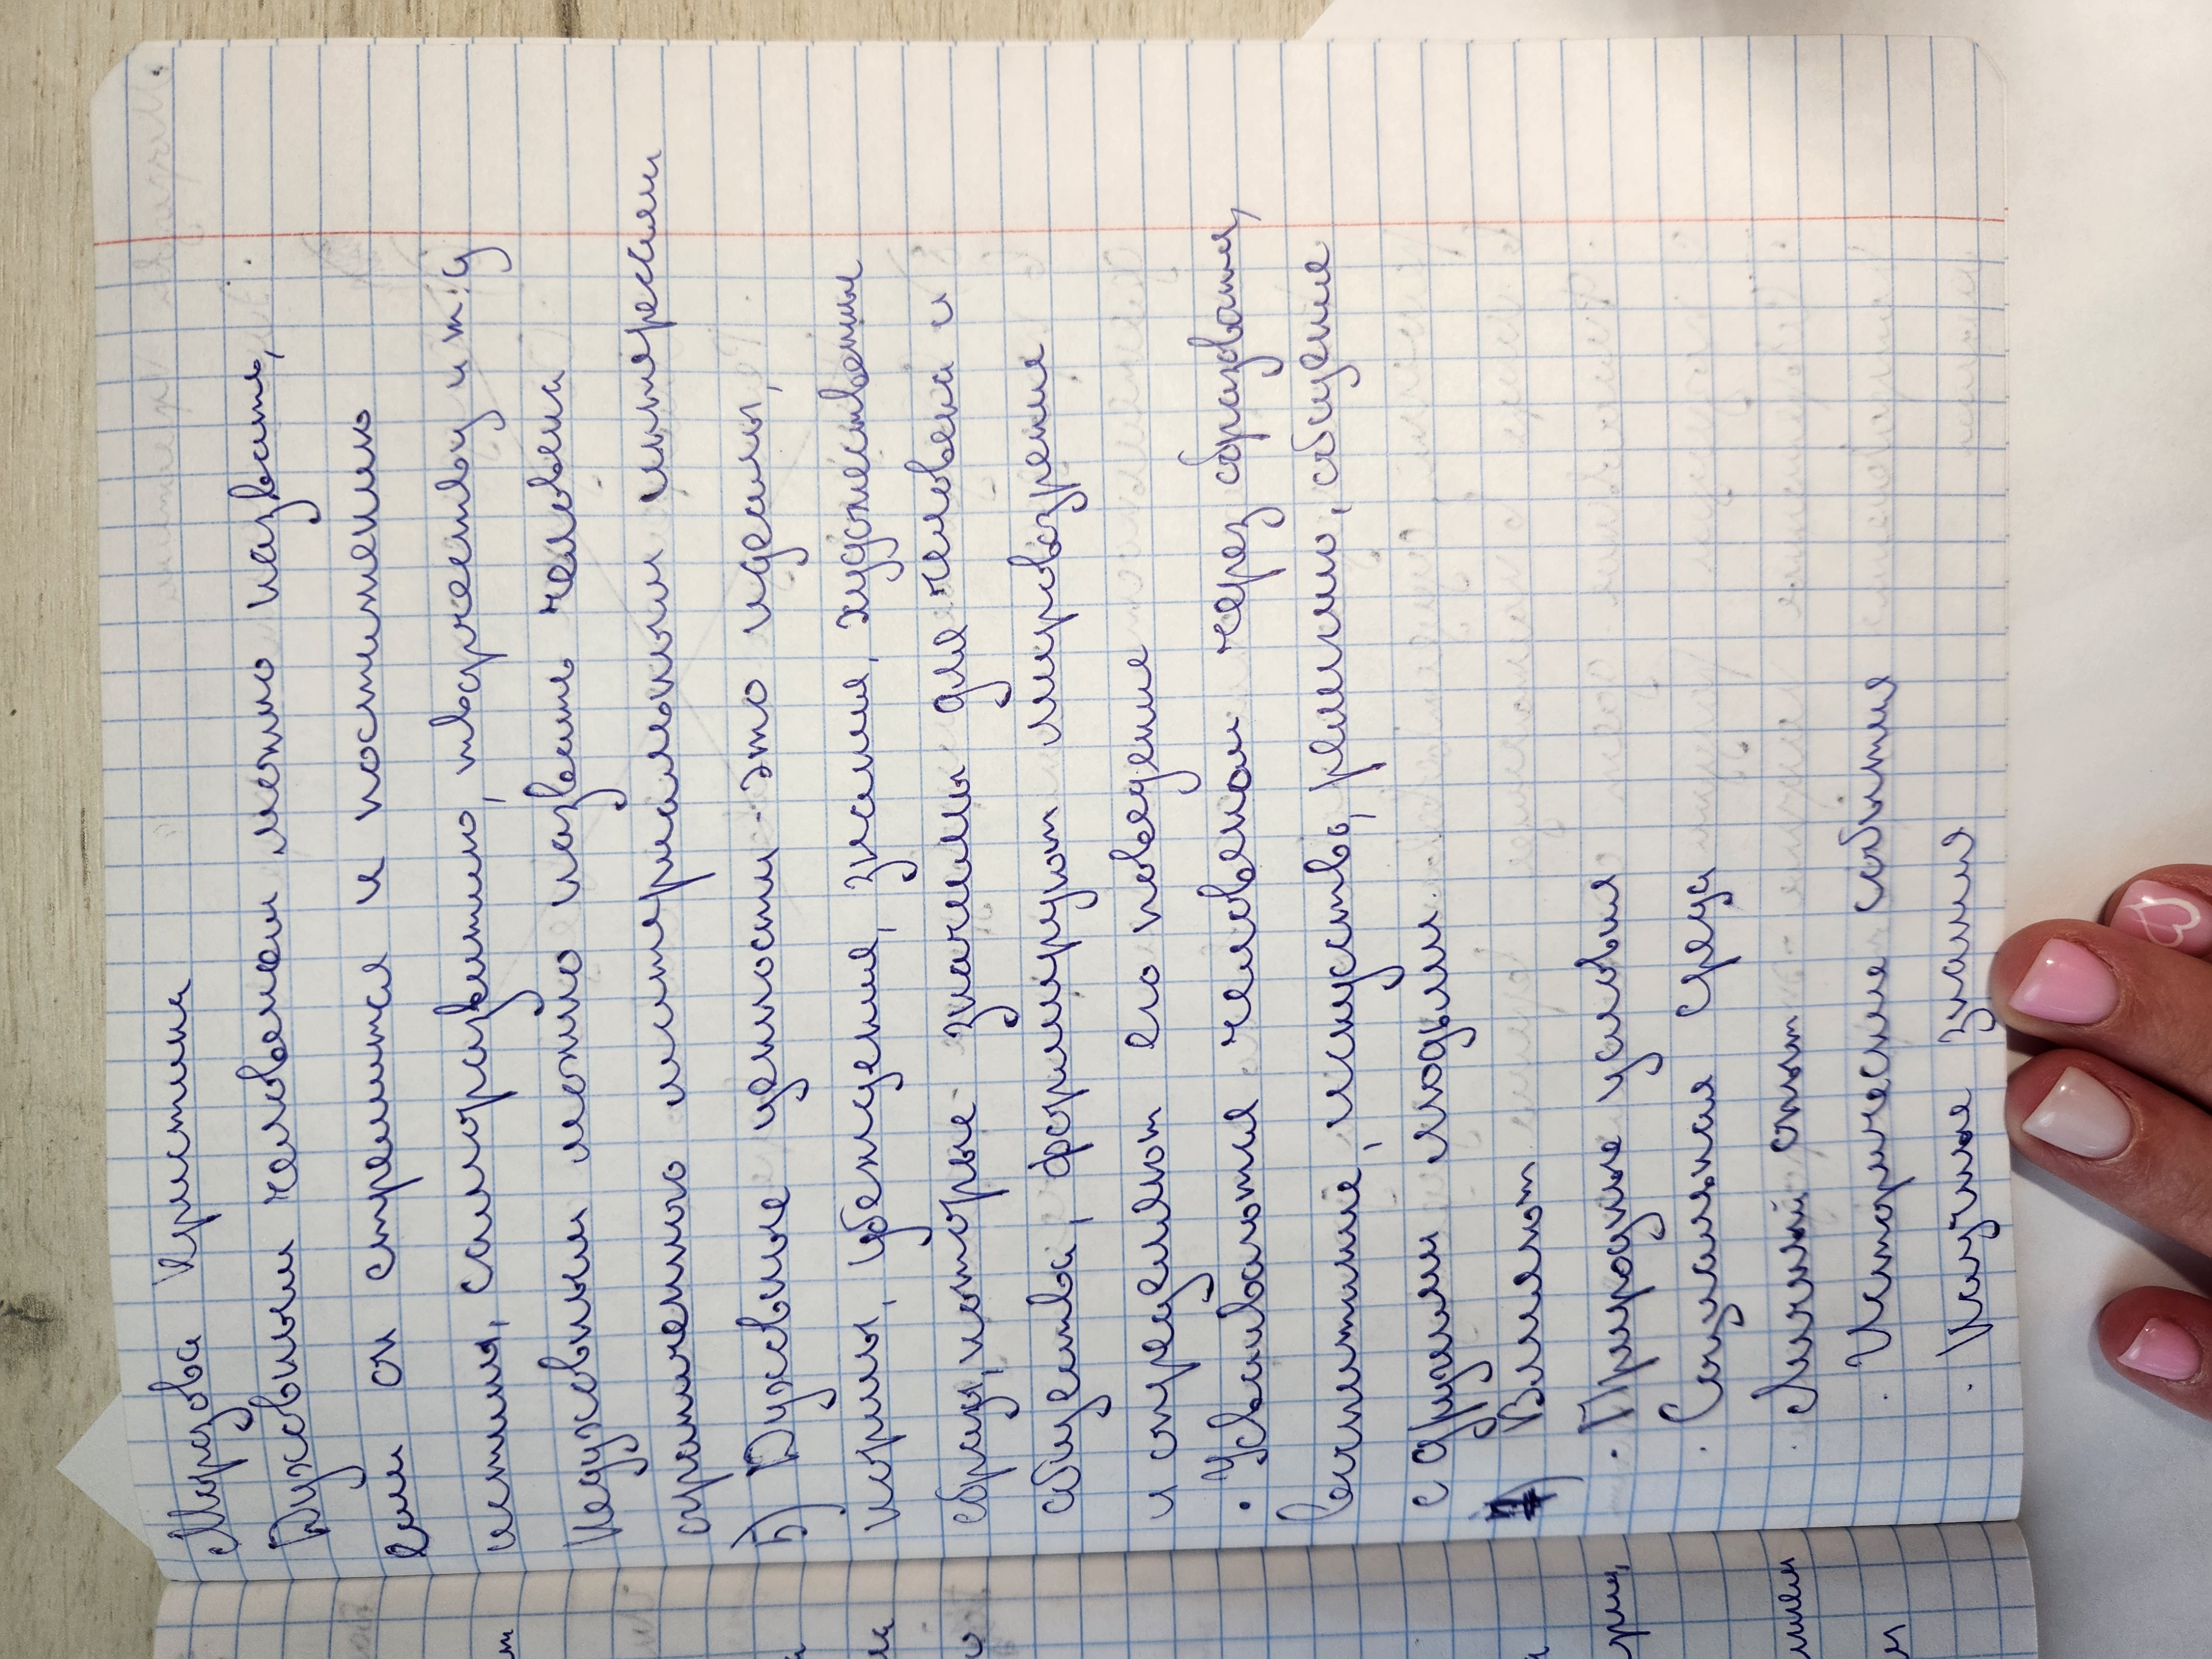 Мирзова Кристина
Духовным человеком можно назвать,
если он стремится к постижению
истины, саморазвитию, творчеству и т.д
Недуховным можно назвать человека
ограниченного материальными интересами
5) Духовные ценности - это идеалы,
нормы, убеждения, знания, художественные
образы, которые значимы для человека и
общества, формируют мировоззрение
и определяют его поведение
• Усваиваются человеком через образование,
воспитание, искусство, религию, общение
с другими людьми
Влияют
• Природные условия
• Социальная среда
• Личный опыт
• Исторические события
• Научные знания